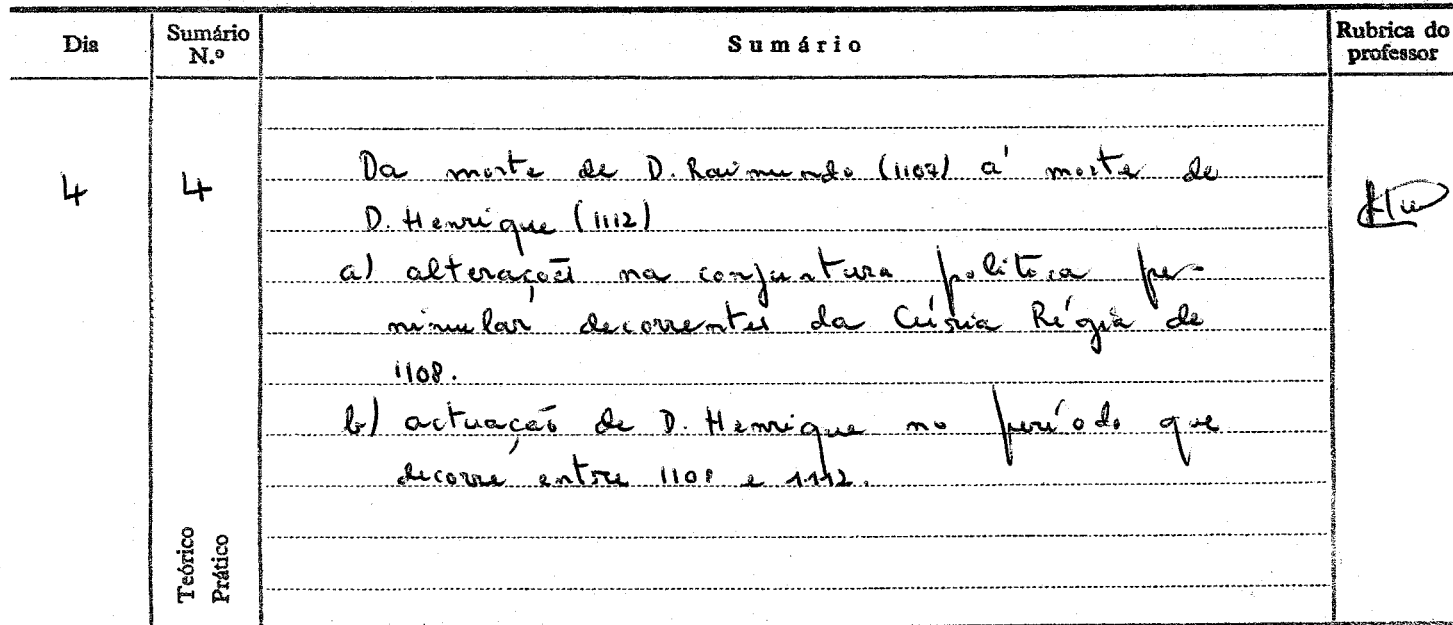 Dia
Sumário N.º
Sumário
Rubrica do professor
4
4
Da morte de D. Raimundo (1107) à morte de
D. Henrique (1112)
a) alterações na conjuntura política pe-
ninsular decorrentes da Cúria Régia de
1108.
b) actuação de D. Henrique no período que
decorre entre 1108 e 1112.
Teórico
Prático